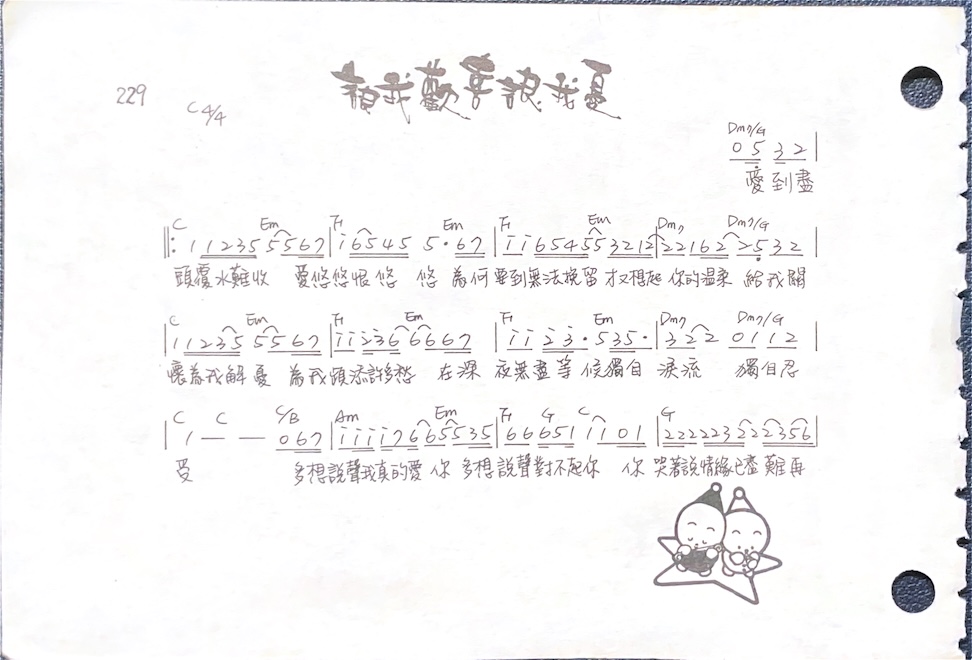 讓我歡喜讓我憂
229 C 4/4
Dm7/G
0 5 3 2
愛到盡
C Em F Em F Em Dm7 Dm7/G
‖: 1 1 2 3 5 5 5 6 7 | i 6 5 4 5 5 · 6 7 | i i 6 5 4 5 5 3 2 1 2 | 2 2 1 6 2 2 5 3 2 |
頭覆水難收 愛悠悠恨悠悠 為何要到無法挽留才又想起你的溫柔 給我關
C Em F Em F Em Dm7 Dm7/G
| 1 1 2 3 5 5 5 6 7 | i i 2 3 6 6 6 6 7 | i i 2 3 · 5 3 5 · | 3 2 2 0 1 1 2 |
懷為我解憂 為我憑添許多愁 在深夜無盡等候獨自淚流 獨自忍
C C C/B Am Em F G C G
| 1 — — 0 6 7 | i i i i 7 6 6 5 5 3 5 | 6 6 6 5 1 1 1 0 1 | 2 2 2 2 2 3 2 2 2 3 5 6 |
受 多想說聲我真的愛你 多想說聲對不起你 你哭著說情緣已盡難再